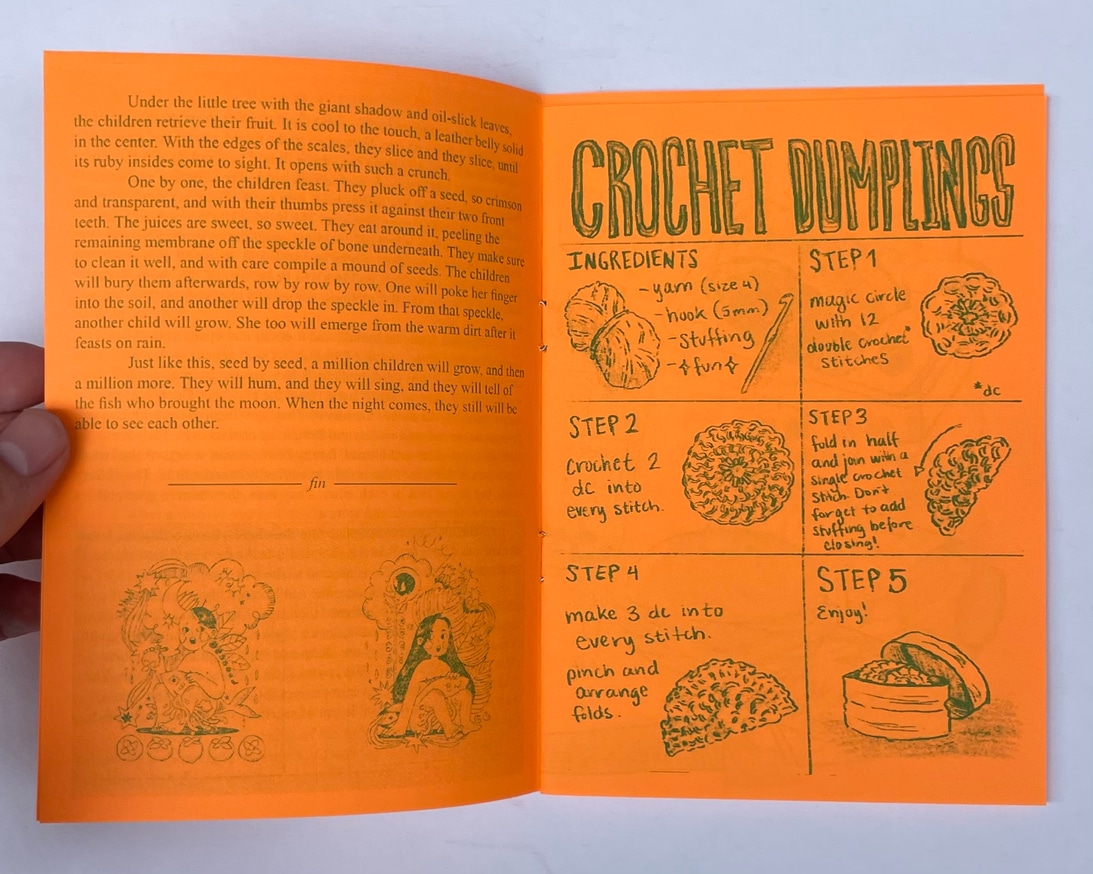 Under the little tree with the giant shadow and oil-slick leaves,
the children retrieve their fruit. It is cool to the touch, a leather belly solid
in the center. With the edges of the scales, they slice and they slice, until
its ruby insides come to sight. It opens with such a crunch.
One by one, the children feast. They pluck off a seed, so crimson
and transparent, and with their thumbs press it against their two front
teeth. The juices are sweet, so sweet. They eat around it, peeling the
remaining membrane off the speckle of bone underneath. They make sure
to clean it well, and with care compile a mound of seeds. The children
will bury them afterwards, row by row by row. One will poke her finger
into the soil, and another will drop the speckle in. From that speckle,
another child will grow. She too will emerge from the warm dirt after it
feasts on rain.
Just like this, seed by seed, a million children will grow, and then
a million more. They will hum, and they will sing, and they will tell of
the fish who brought the moon. When the night comes, they still will be
able to see each other.
fin
CROCHET DUMPLINGS
INGREDIENTS
- yarn (size 4)
- hook (5mm)
- stuffing
- ✧fun✧
STEP 1
magic circle
with 12
double crochet*
stitches
*dc
STEP 2
crochet 2
dc into
every stitch.
STEP 3
fold in half
and join with a
single crochet
stitch. Don't
forget to add
stuffing before
closing!
STEP 4
make 3 dc into
every stitch.
pinch and
arrange
folds.
STEP 5
Enjoy!